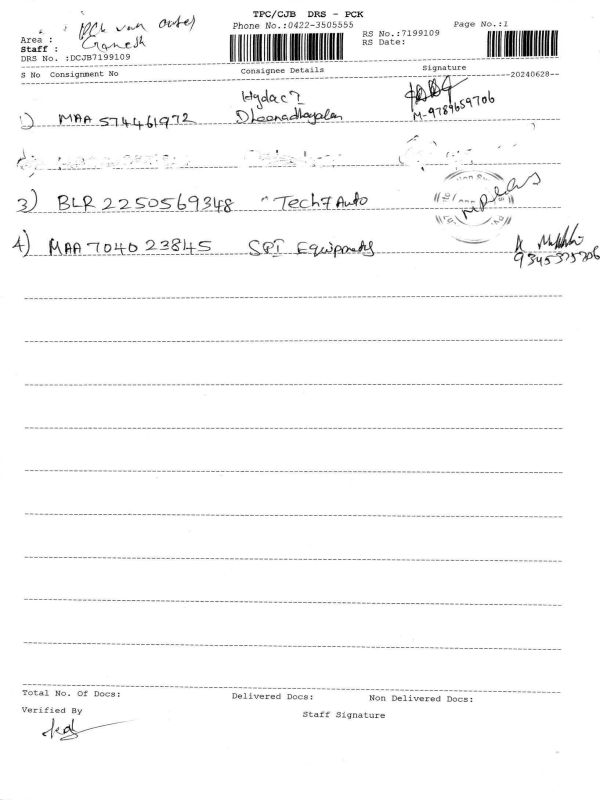 TPC/CJB DRS - PCK
Phone No.:0422-3505555
Page No.:1
Area : PCK van
Staff : Ganesh
DRS No. :DCJB7199109
RS No.:7199109
RS Date:
S No Consignment No Consignee Details Signature
20240628
1) MAA 574461972 Dheenadhayalan M-9789659706
3) BLR 2250569348 Tech7 Auto
4) MAA 704023845 SPI Equipments 9345375706
Total No. Of Docs: Delivered Docs: Non Delivered Docs:
Verified By
Staff Signature